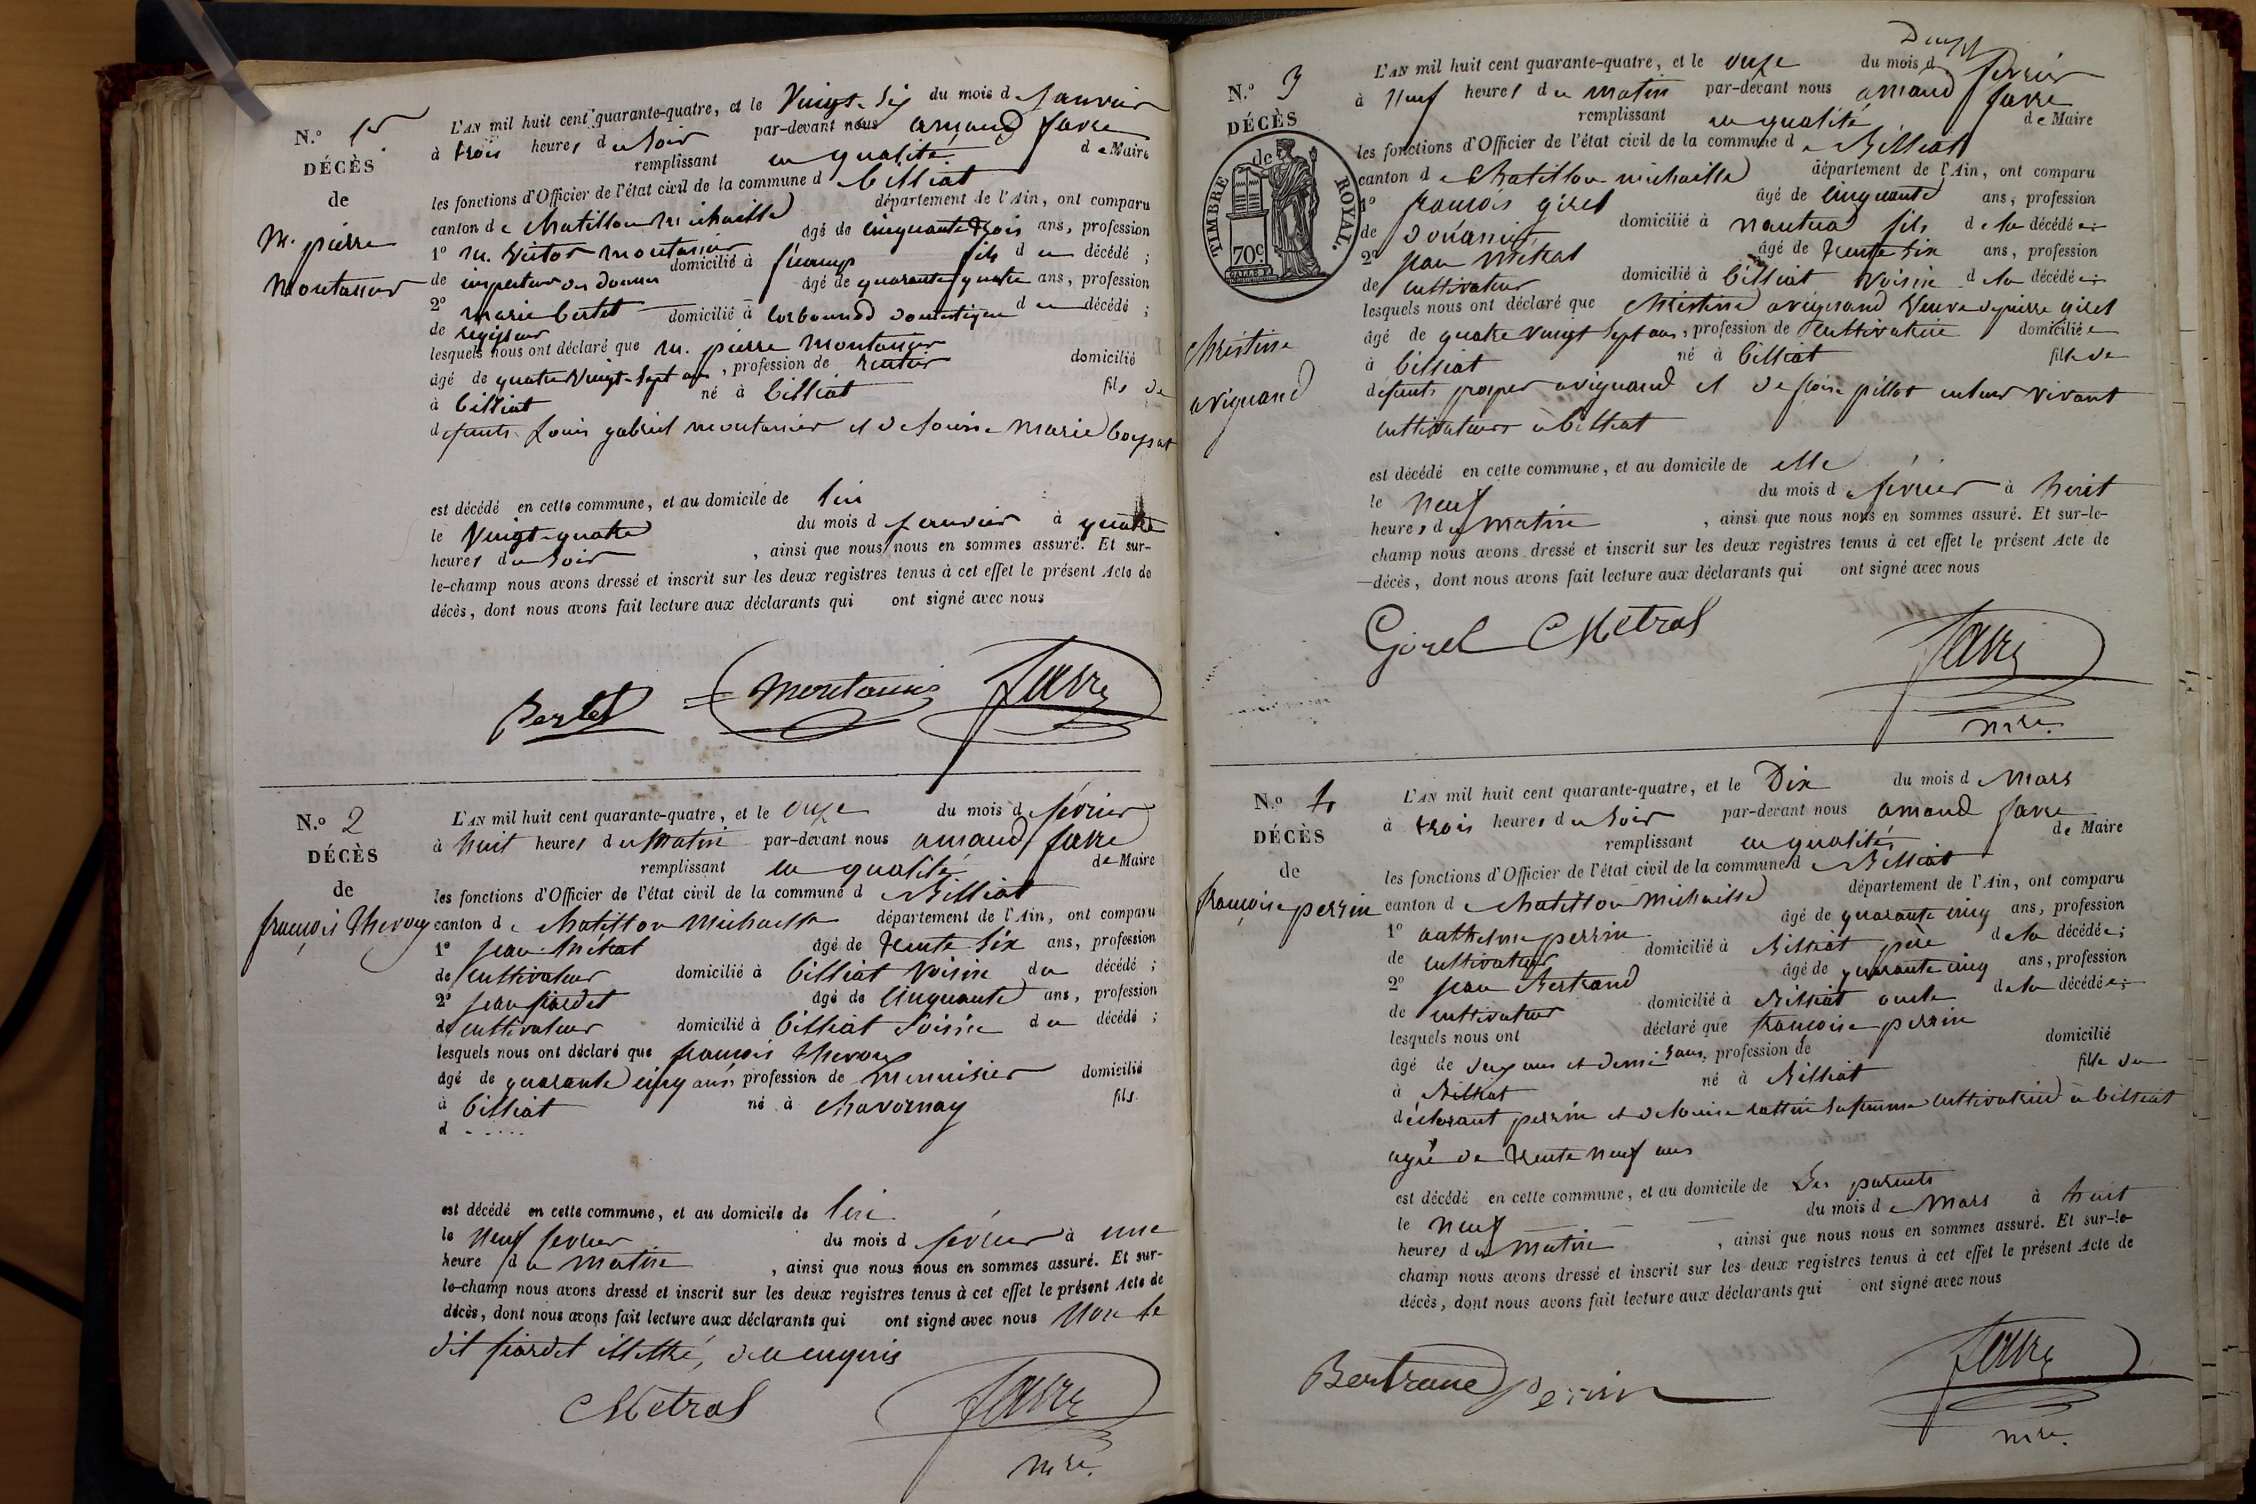 N.º 1er
DÉCÈS
de
M. pierre
Montanier
L'AN mil huit cent quarante-quatre, et le Vingt-Six du mois de Janvier
à trois heures du Soir par-devant nous armand favre
remplissant en qualité de Maire
les fonctions d'Officier de l'état civil de la commune d billiat
canton de Chatillon michaille département de l'Ain, ont comparu
1º M. Victor montanier âgé de cinquante trois ans, profession
de inspecteur des douanes domicilié à fils du décédé ;
2º marie bertet âgé de quarante quatre ans, profession
de regisseur domicilié à Corbonod domestique du décédé ;
lesquels nous ont déclaré que M. pierre Montanier
âgé de quatre Vingt-Sept ans, profession de rentier domicilié
à billiat né à billiat fils de
défunts Louis gabriel montanier et de Louise Marie
est décédé en cette commune, et au domicile de lui
le Vingt-quatre du mois de Janvier à quatre
heures du Soir, ainsi que nous nous en sommes assuré. Et sur-
le-champ nous avons dressé et inscrit sur les deux registres tenus à cet effet le présent Acte de
décès, dont nous avons fait lecture aux déclarants qui ont signé avec nous
Bertet Montanier Favre
N.º 2
DÉCÈS
de
françois thevoux
L'AN mil huit cent quarante-quatre, et le onze du mois de février
à huit heures du Matin par-devant nous armand favre
remplissant en qualité de Maire
les fonctions d'Officier de l'état civil de la commune d Billiat
canton de Chatillon Michaille département de l'Ain, ont comparu
1º jean Métral âgé de trente Six ans, profession
de Cultivateur domicilié à billiat Voisin du décédé ;
2º jean fiardet âgé de Cinquante ans, profession
de cultivateur domicilié à billiat Voisin du décédé ;
lesquels nous ont déclaré que françois thevoux
âgé de quarante cinq ans profession de Menuisier domicilié
à billiat né à Chavornay fils
d - - - - -
est décédé en cette commune, et au domicile de lui
le Neuf fevrier du mois d février à une
heure du matin, ainsi que nous nous en sommes assuré. Et sur-
le-champ nous avons dressé et inscrit sur les deux registres tenus à cet effet le présent Acte de
décès, dont nous avons fait lecture aux déclarants qui ont signé avec nous Non le
dit fiardet illettré, de ce enquis
Métral Favre
mre.
N.º 3
DÉCÈS
de
TIMBRE ROYAL.
70c
Christine
avignand
L'AN mil huit cent quarante-quatre, et le onze du mois d février
à Neuf heures du matin par-devant nous armand favre
remplissant en qualité de Maire
les fonctions d'Officier de l'état civil de la commune de Billiat
canton de Chatillon michaille département de l'Ain, ont comparu
1º françois girel âgé de Cinquante ans, profession
de domicilié à nantua fils de la décédée ;
2º jean Métral âgé de trente Six ans, profession
de cultivateur domicilié à billiat Voisin de la décédée ;
lesquels nous ont déclaré que Christine avignand Veuve de pierre girel
âgé de quatre Vingt Sept ans, profession de Cultivatrice domiciliée
à billiat né à billiat fille de
défunts prosper avignand et de pillot en leur vivant
cultivateurs à billiat
est décédé en cette commune, et au domicile de elle
le Neuf du mois de février à huit
heures du matin, ainsi que nous nous en sommes assuré. Et sur-le-
champ nous avons dressé et inscrit sur les deux registres tenus à cet effet le présent Acte de
décès, dont nous avons fait lecture aux déclarants qui ont signé avec nous
Girel Métral Favre
mre.
N.º 4
DÉCÈS
de
françoise perrin
L'AN mil huit cent quarante-quatre, et le Dix du mois de Mars
à trois heures du Soir par-devant nous armand favre
remplissant en qualité de Maire
les fonctions d'Officier de l'état civil de la commune d Billiat
canton de Chatillon Michaille département de l'Ain, ont comparu
1º anthelme perrin âgé de quarante cinq ans, profession
de cultivateur domicilié à Billiat père de la décédée ;
2º jean Bertrand âgé de quarante cinq ans, profession
de cultivateur domicilié à Billiat oncle de la décédée ;
lesquels nous ont déclaré que francoise perrin
âgé de ans et demi ans, profession de domicilié
à Billiat né à Billiat fille du
déclarant perrin et de Louise Sa femme cultivatrice à billiat
agée de trente Neuf ans
est décédé en cette commune, et au domicile de Ses parents
le Neuf du mois de Mars à huit
heures du Matin, ainsi que nous nous en sommes assuré. Et sur-le-
champ nous avons dressé et inscrit sur les deux registres tenus à cet effet le présent Acte de
décès, dont nous avons fait lecture aux déclarants qui ont signé avec nous
Bertrand Perrin Favre
mre.